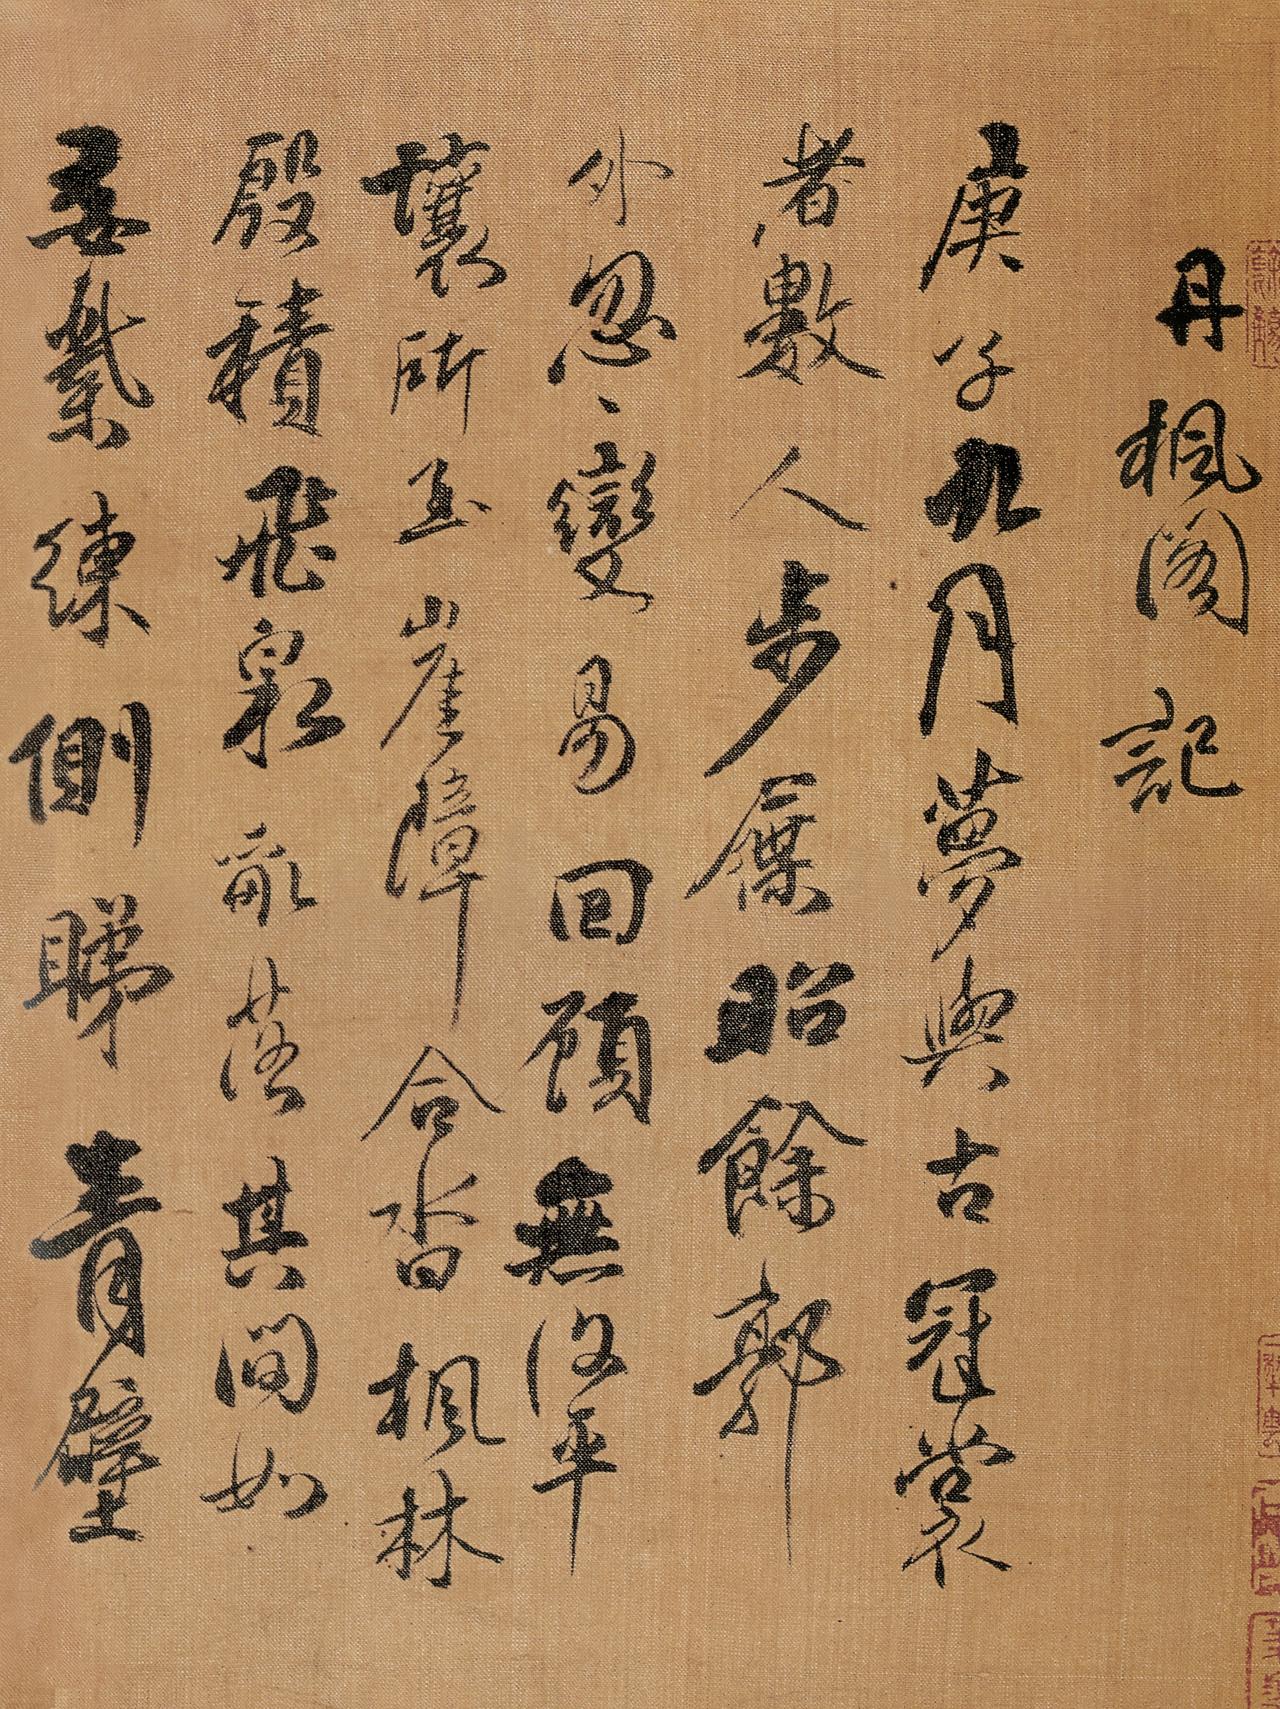 丹楓閣記
庚子九月夢與古冠裳
者數人步屧昭餘郭
外忽、變易回顧無復平
壤所至崖障合沓楓林
殷積飛泉亂落其間如
委縈練側睇青壁